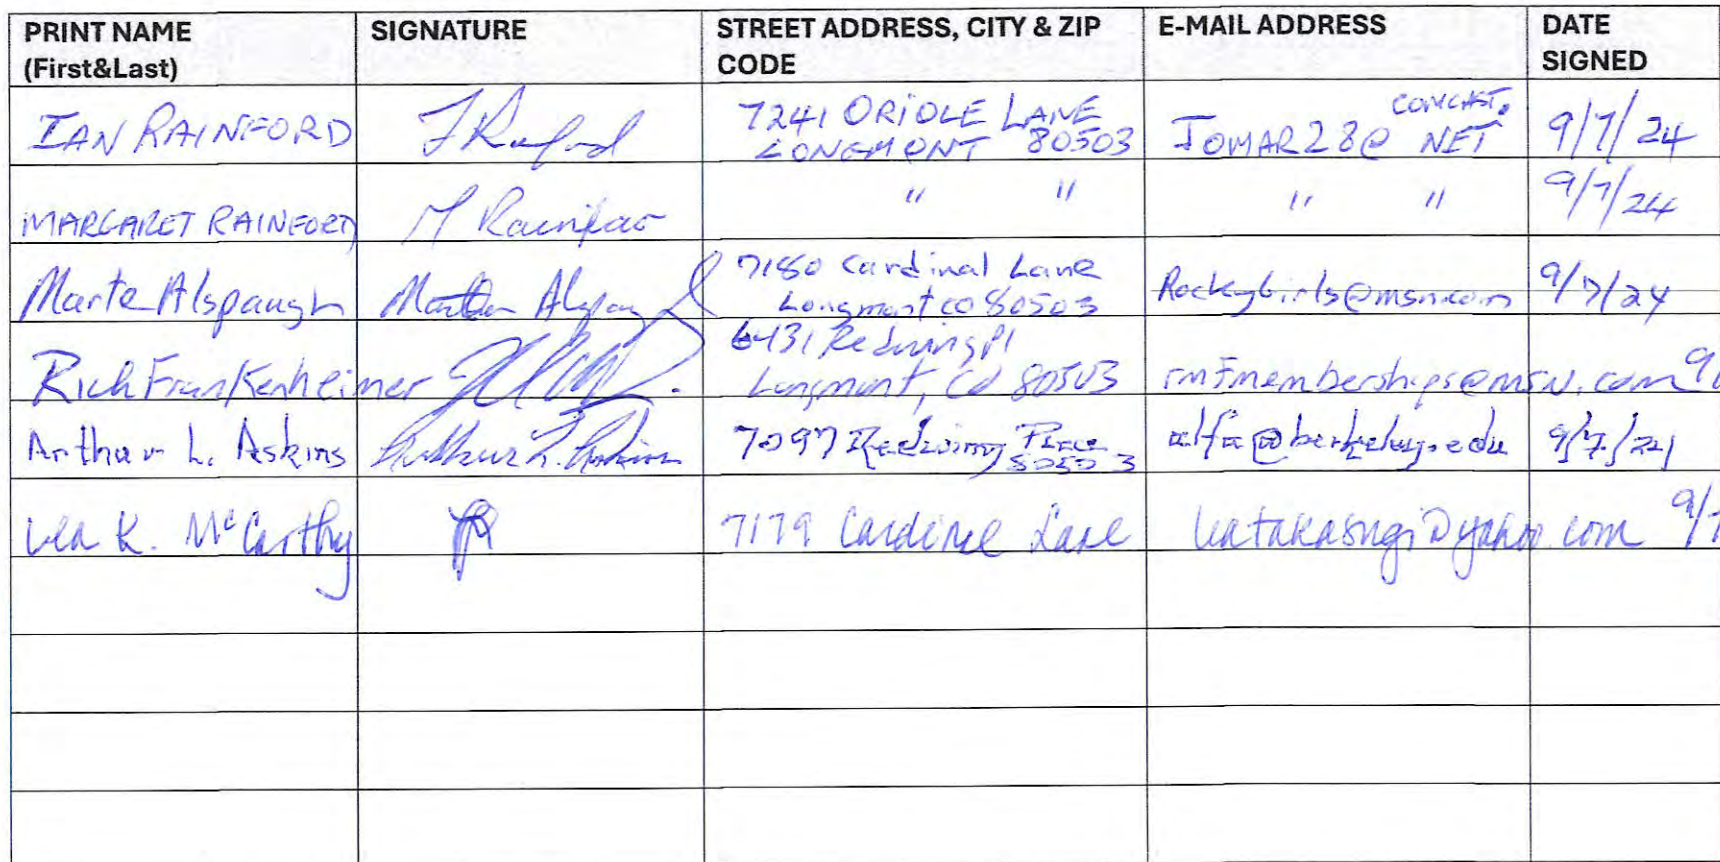 PRINT NAME (First&Last) SIGNATURE STREET ADDRESS, CITY & ZIP CODE E-MAIL ADDRESS DATE SIGNED
IAN RAINFORD 7241 ORIOLE LANE LONGMONT 80503 JOMAR28@ COMCAST. NET 9/7/24
MARGARET RAINFORD M Rainford " " " " 9/7/24
Marte Alspaugh 7180 Cardinal Lane Longmont CO 80503 Rockygirls@msn.com 9/7/24
Rich Frankenheimer Redwing Pl Longmont, CO 80503 rmfmemberships@msn.com
Arthur L. Askins Arthur L. Askins 7097 Redwing Place 80503 alfa@berkeley.edu 9/7/24
K. McCarthy 7179 Cardinal Lane 9/7